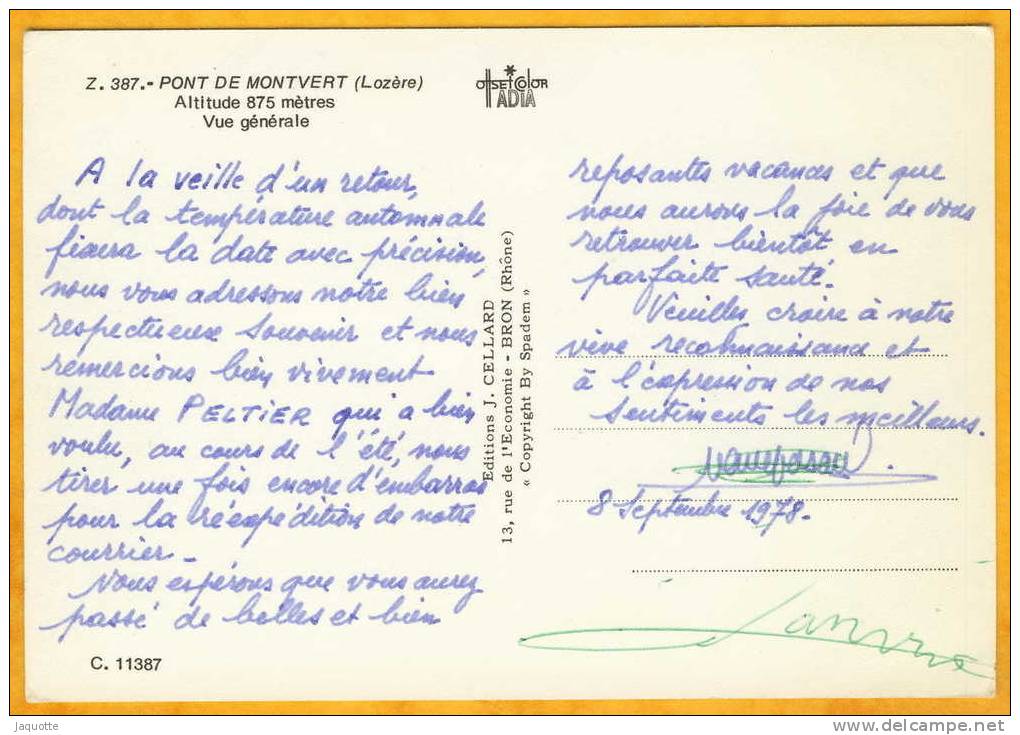 Z. 387.- PONT DE MONTVERT (Lozère)
Altitude 875 mètres
Vue générale
OFFSET COLOR
ADIA
A la veille d'un retour,
dont la température automnale
fixera la date avec précision,
nous vous adressons notre bien
respectueux souvenir et nous
remercions bien vivement
Madame PELTIER qui a bien
voulu, au cours de l'été, nous
tirer une fois encore d'embarras
pour la réexpédition de notre
courrier -
Nous espérons que vous aurez
passé de belles et bien
C. 11387
Editions J. CELLARD
13, rue de l'Economie - BRON (Rhône)
« Copyright By Spadem »
reposantes vacances et que
nous aurons la joie de vous
retrouver bientôt en
parfaite santé.
Veuilles croire à notre
vive reconnaissance et
à l'expression de nos
sentiments les meilleurs.
8 Septembre 1978.
jaquotte
www.delcampe.net